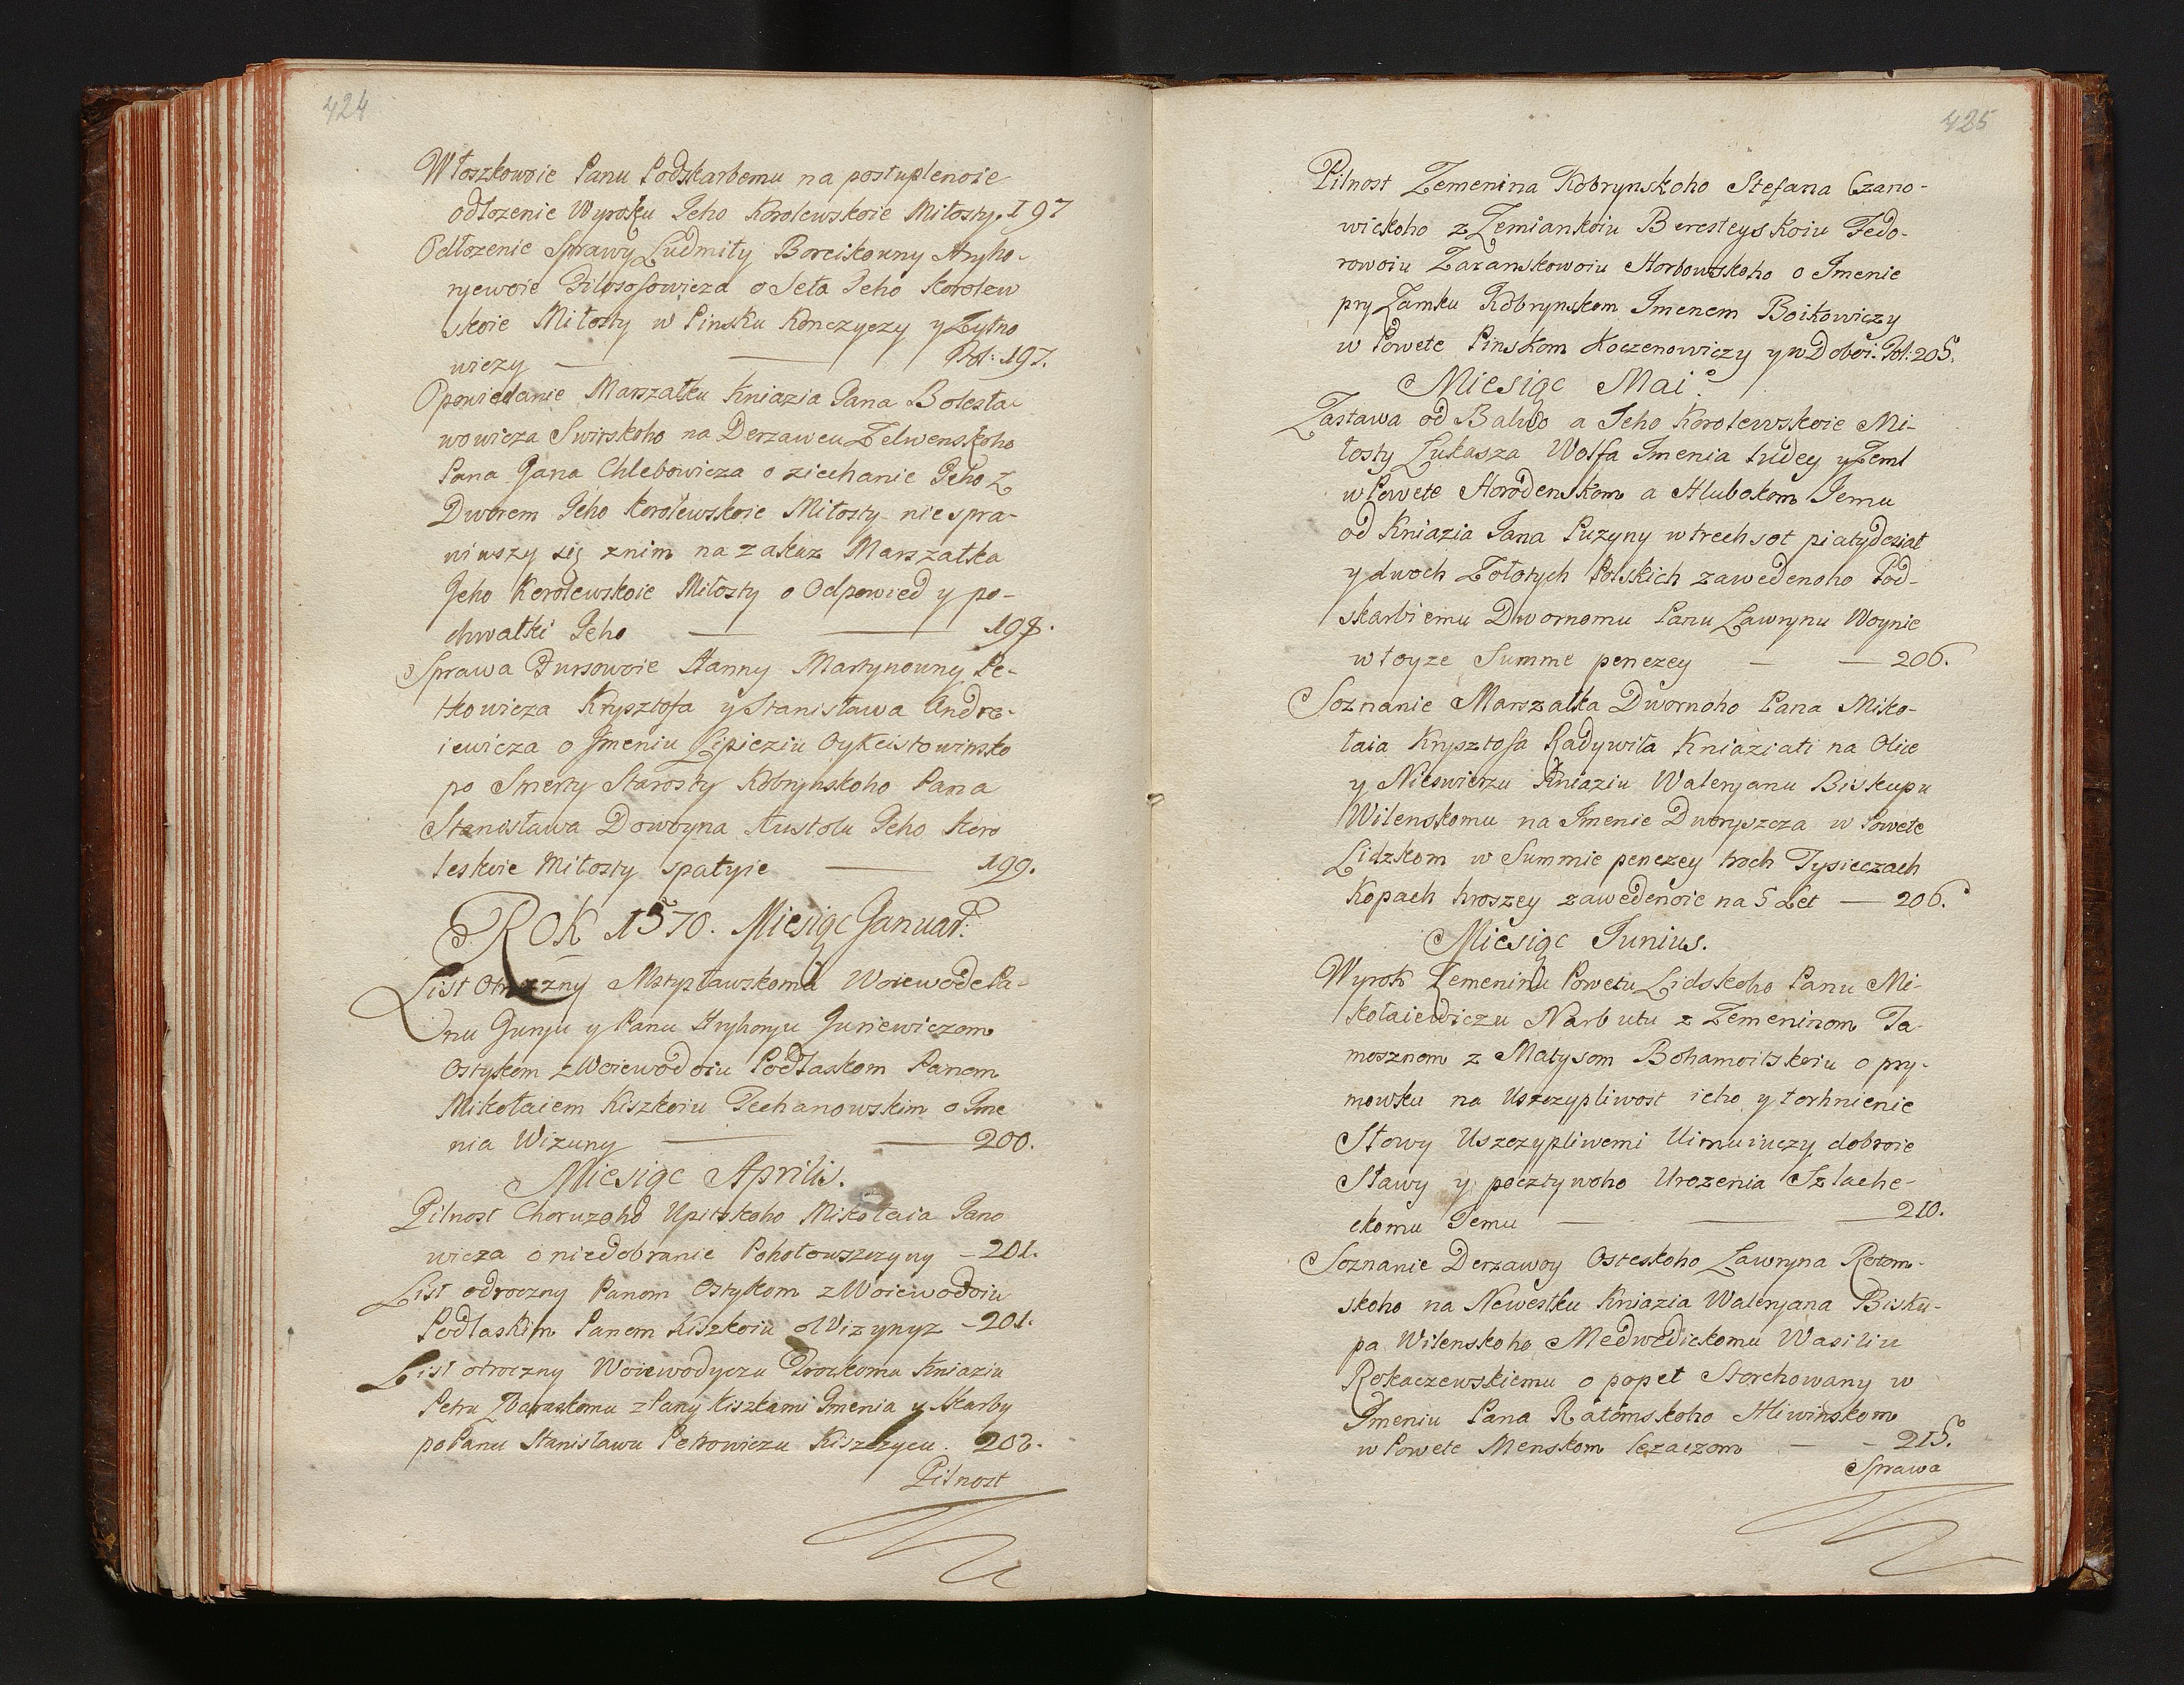 424
Włoszkowoie Panu Podskarbemu na postuplenoie
odłozenie Wyroku Jeho Korolewskoie Miłosty. 197
Odłozenie Sprawy Ludmiły Boreikowny Hryho-
ryewoie Filosofowicza o Seła Jeho Korolew
skoie Miłosty w Pinsku Konczyczy y Zytno
wiczy — — Fol: 197.
Opowiedanie Marszałku Kniazia Jana Bolesła-
wowicza Swirskoho na Derzawcu Zelwenskoho
Pana Jana Chlebowicza o ziechanie Jeho z
Dworem Jeho Korolewskoie Miłosty nie spra-
wiwszy się znim na zakaz Marszałka
Jeho Korolewskoie Miłosty o Odpowied y po-
chwałki Jeho — — 198.
Sprawa Dursowoie Hanny Martynowny Pe-
tkowicza Krysztofa y Stanisława Andre-
iewicza o Jmeniu Lipieziu
po Smerty Starosty Kobrynskoho Pana
Stanisława Dowoyna Jeho Koro
leskoie Miłosty spałyie — 199.
ROK 1570. Miesiąc Januar:
List Otroczny Mstysławskomu Woiewode Pa-
nu Jurju y Panu Hryhoryu Juriewiczom
Ostykom z Woiewodoiu Podlaskom Panem
Mikołaiem Kiszkoiu Techanowskim o Jme
nia Wizuny — — 200.
Miesiąc Aprilis.
Pilnost Choruzoho Upitskoho Mikołaia Jano
wicza o niedobranie Pohołowszczyny — 201.
List odroczny Panom Ostykom z Woiewodoiu
Podlaskim Panem Kiszkoiu o Wizynyz — 201.
List otroczny Woiewodyczu Trockomu Kniaziu
Petru Zbaraskomu z Pany Kiszkami Jmenia y Skarby
po Panu Stanisławu Petrowiczu Kiszczycu. 202.
Pilnost
425
Pilnost Zemenina Kobrynskoho Stefana Czano-
wickoho z Zemiankoiu Beresteyskoiu Fedo-
rowoiu Zaranskowoiu Horbowskoho o Jmenie
pry Zamku Kobrynskom Jmenem Boikowiczy
w Powete Pinskom Koczenowiczy y w Fol: 205.
Miesiąc Mai.
Zastawa od a Jeho Korolewskoie Mi-
łosty Lukasza Wolfa Jmenia ludey y Zeml
w Powete Horodenskom a Hlubokom Jemu
od Kniazia Jana Puzyny w trech sot piatydesiat
y dwoch Zołotych Polskich zawedenoho Pod-
skarbiemu Dwornomu Panu Lawrynu Woynie
w toyze Summe penezey — — 206.
Soznanie Marszałka Dwornoho Pana Miko-
łaia Krysztofa Radywiła Kniaziati na Olice
y Nieswierzu Kniaziu Waleryanu Biskupu
Wilenskomu na Jmenie Dworyszcza w Powete
Lidzkom w Summie penezey troch Tysieczach
Kopach hroszey zawedenoie na 5 Let — 206.
Miesiąc Junius.
Wyrok Zemeninu Powetu Lidskoho Panu Mi-
kołaiewiczu Narbutu z Zemeninom Ta-
mosznom z Matysom Bohamoitskoiu o pry-
mowku na Uszczypliwost ieho y torhnienie
Słowy Uszczypliwemi Uimuiuczy dobroie
Sławy y poczty woho Urozenia Szlache-
ckomu Jemu — — 210.
Soznanie Derzawcy Osteskoho Lawryna Rotom-
skoho na Newestku Kniazia Waleryana Bisku-
pa Wilenskoho Medwedickomu Wasiliu
Rokaczewskiemu o popeł Storchowany w
Jmeniu Pana Ratomskoho Hliwinskom
w Powete Menskom lezaczom — — 215.
Sprawa